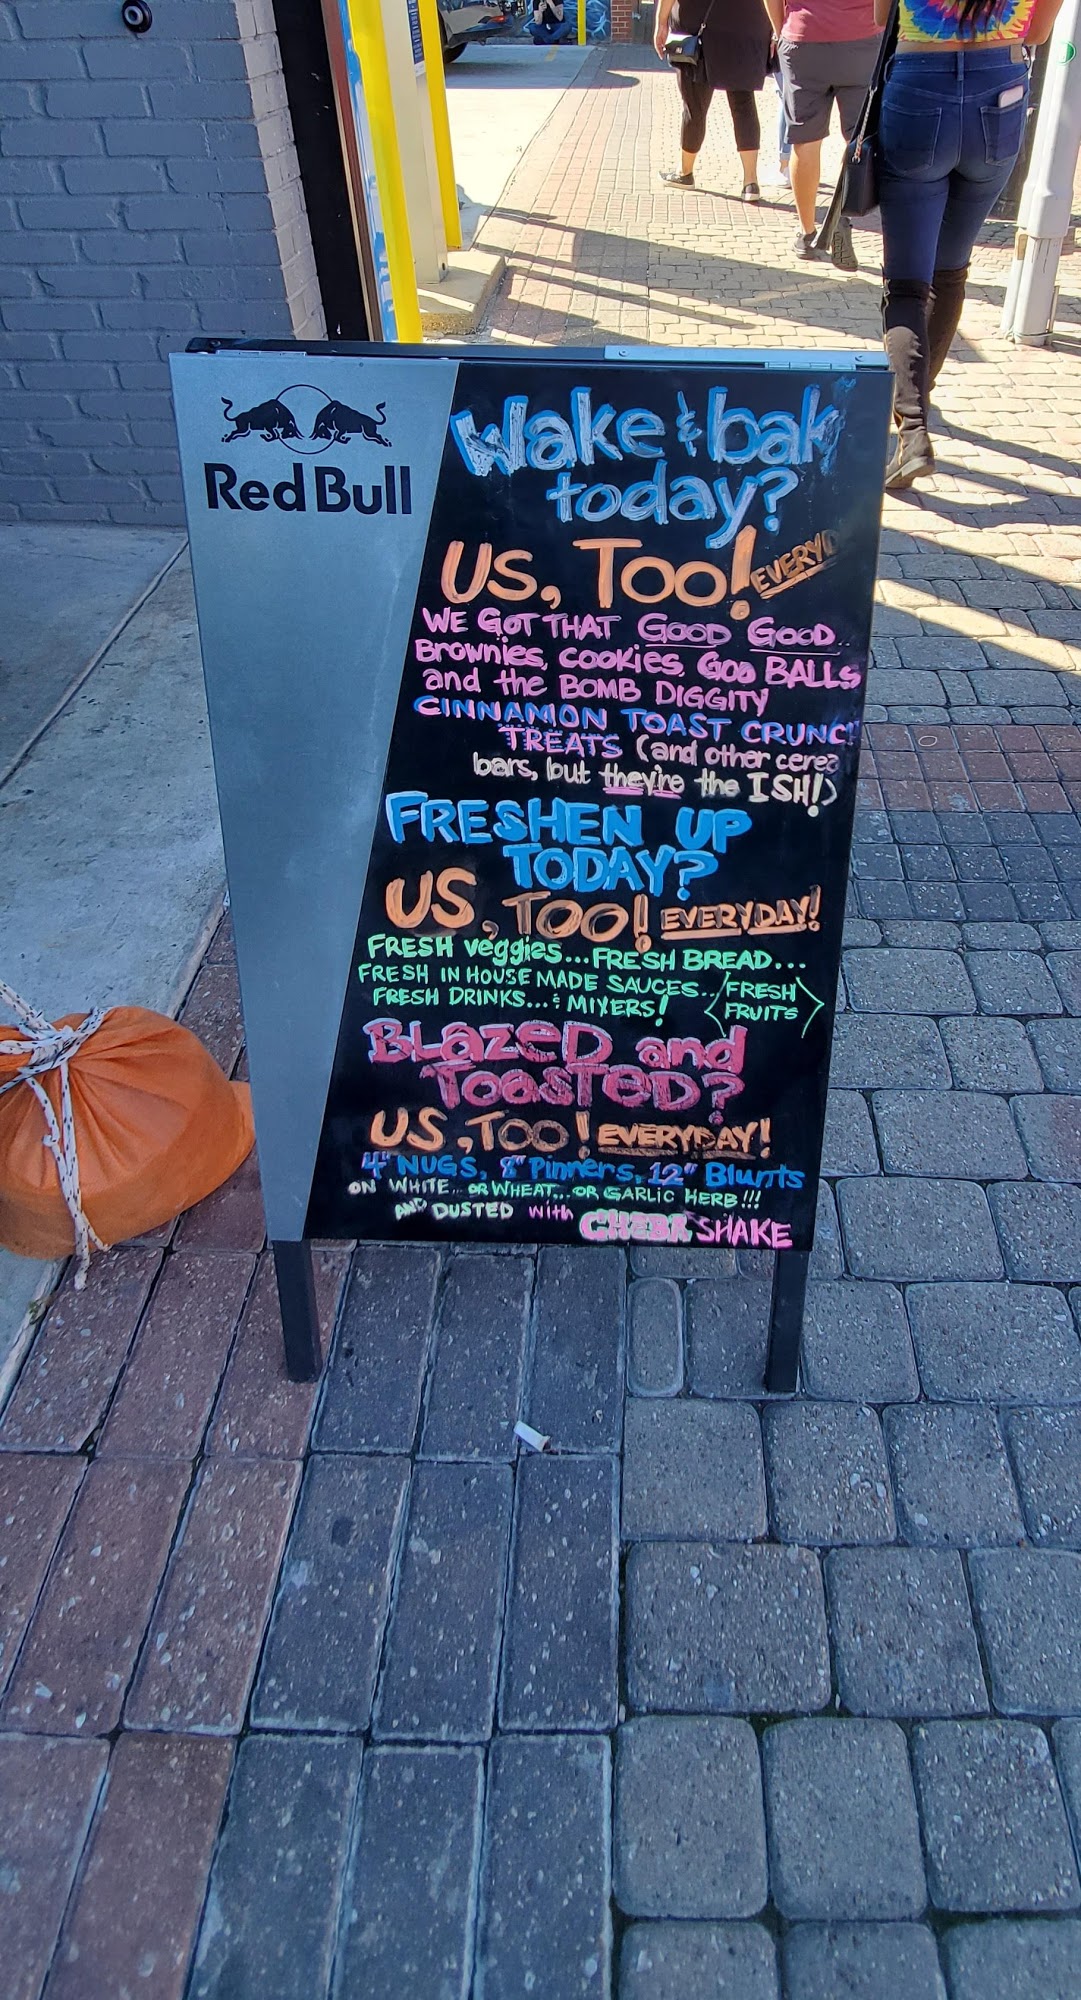 Red Bull
Wake & bak
today?
US, Too! EVERYD
WE GOT THAT GOOD GOOD...
Brownies, cookies, Goo BALLS
and the BOMB DIGGITY
CINNAMON TOAST CRUNC
TREATS (and other cerea
bars, but they're the ISH!)
FRESHEN UP
TODAY?
US, TOO! EVERYDAY!
FRESH veggies... FRESH BREAD...
FRESH IN HOUSE MADE SAUCES...
FRESH DRINKS... & MIXERS!
FRESH
FRUITS
BLazeD and
ToasTeD?
US, TOO! EVERYDAY!
4" NUGS, 8" Pinners, 12" Blunts
ON WHITE... OR WHEAT... OR GARLIC HERB!!!
AND DUSTED with CHEBA SHAKE